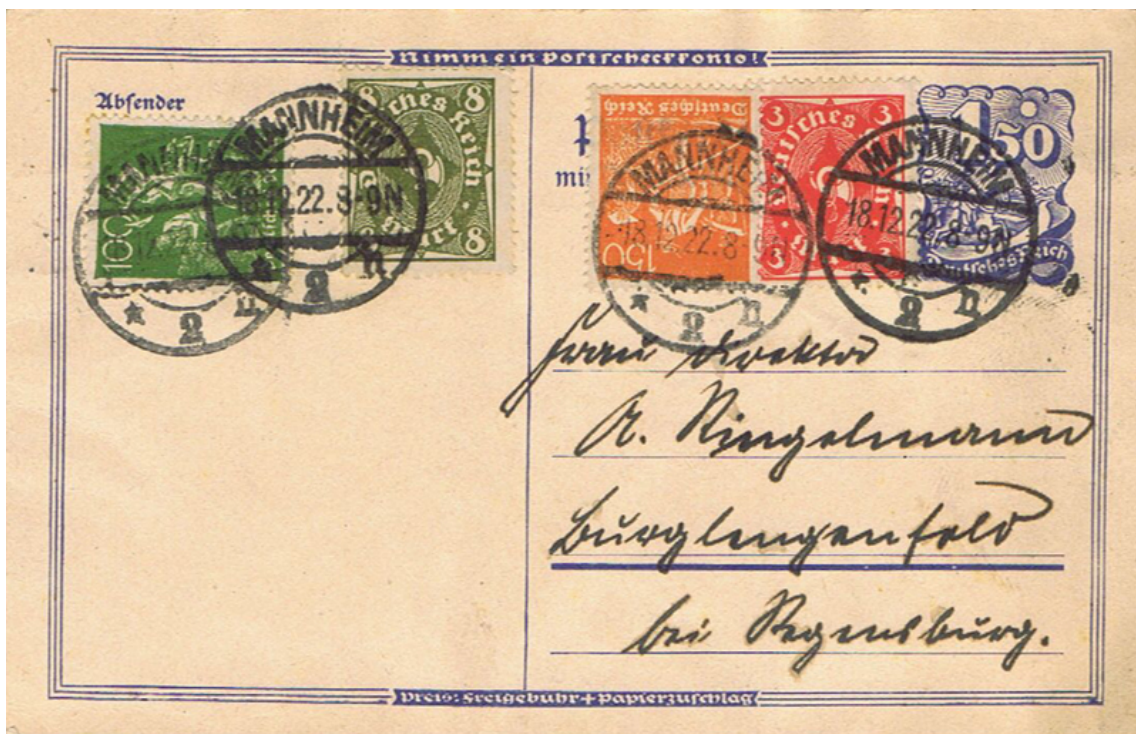 Nimm ein Postscheckkonto!
Absender
100
MANNHEIM
18.12.22.8-9N
* 2 n
8 8
Deutsches Reich
8
MANNHEIM
18.12.22.8-9N
* 2 n
Deutsches Reich
150
MANNHEIM
18.12.22.8-9N
* 2 n
3 3
Deutsches Reich
3 3
MANNHEIM
18.12.22.8-9N
* 2 n
1.50
Deutsches Reich
mi
Frau Direktor
A. Ringelmann
Burglengenfeld
bei Regensburg.
Preis: Freigebühr + Papierzuschlag